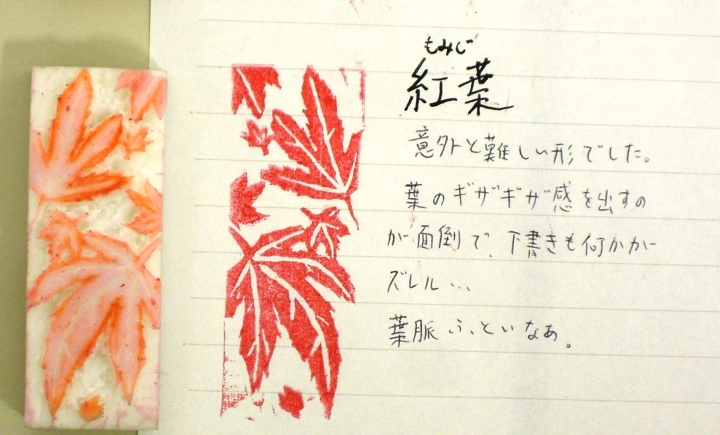 もみじ
紅葉
意外と難しい形でした。
葉のギザギザ感を出すの
が面倒で、下書きも何かがー
ズレル...
葉脈ふっといなあ。